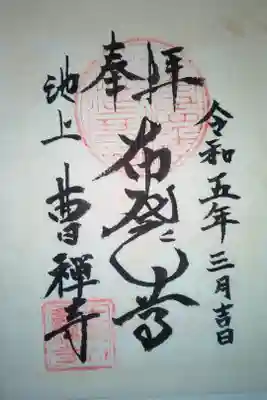 令和五年三月吉日
奉拝
布袋尊
池上 曹禅寺